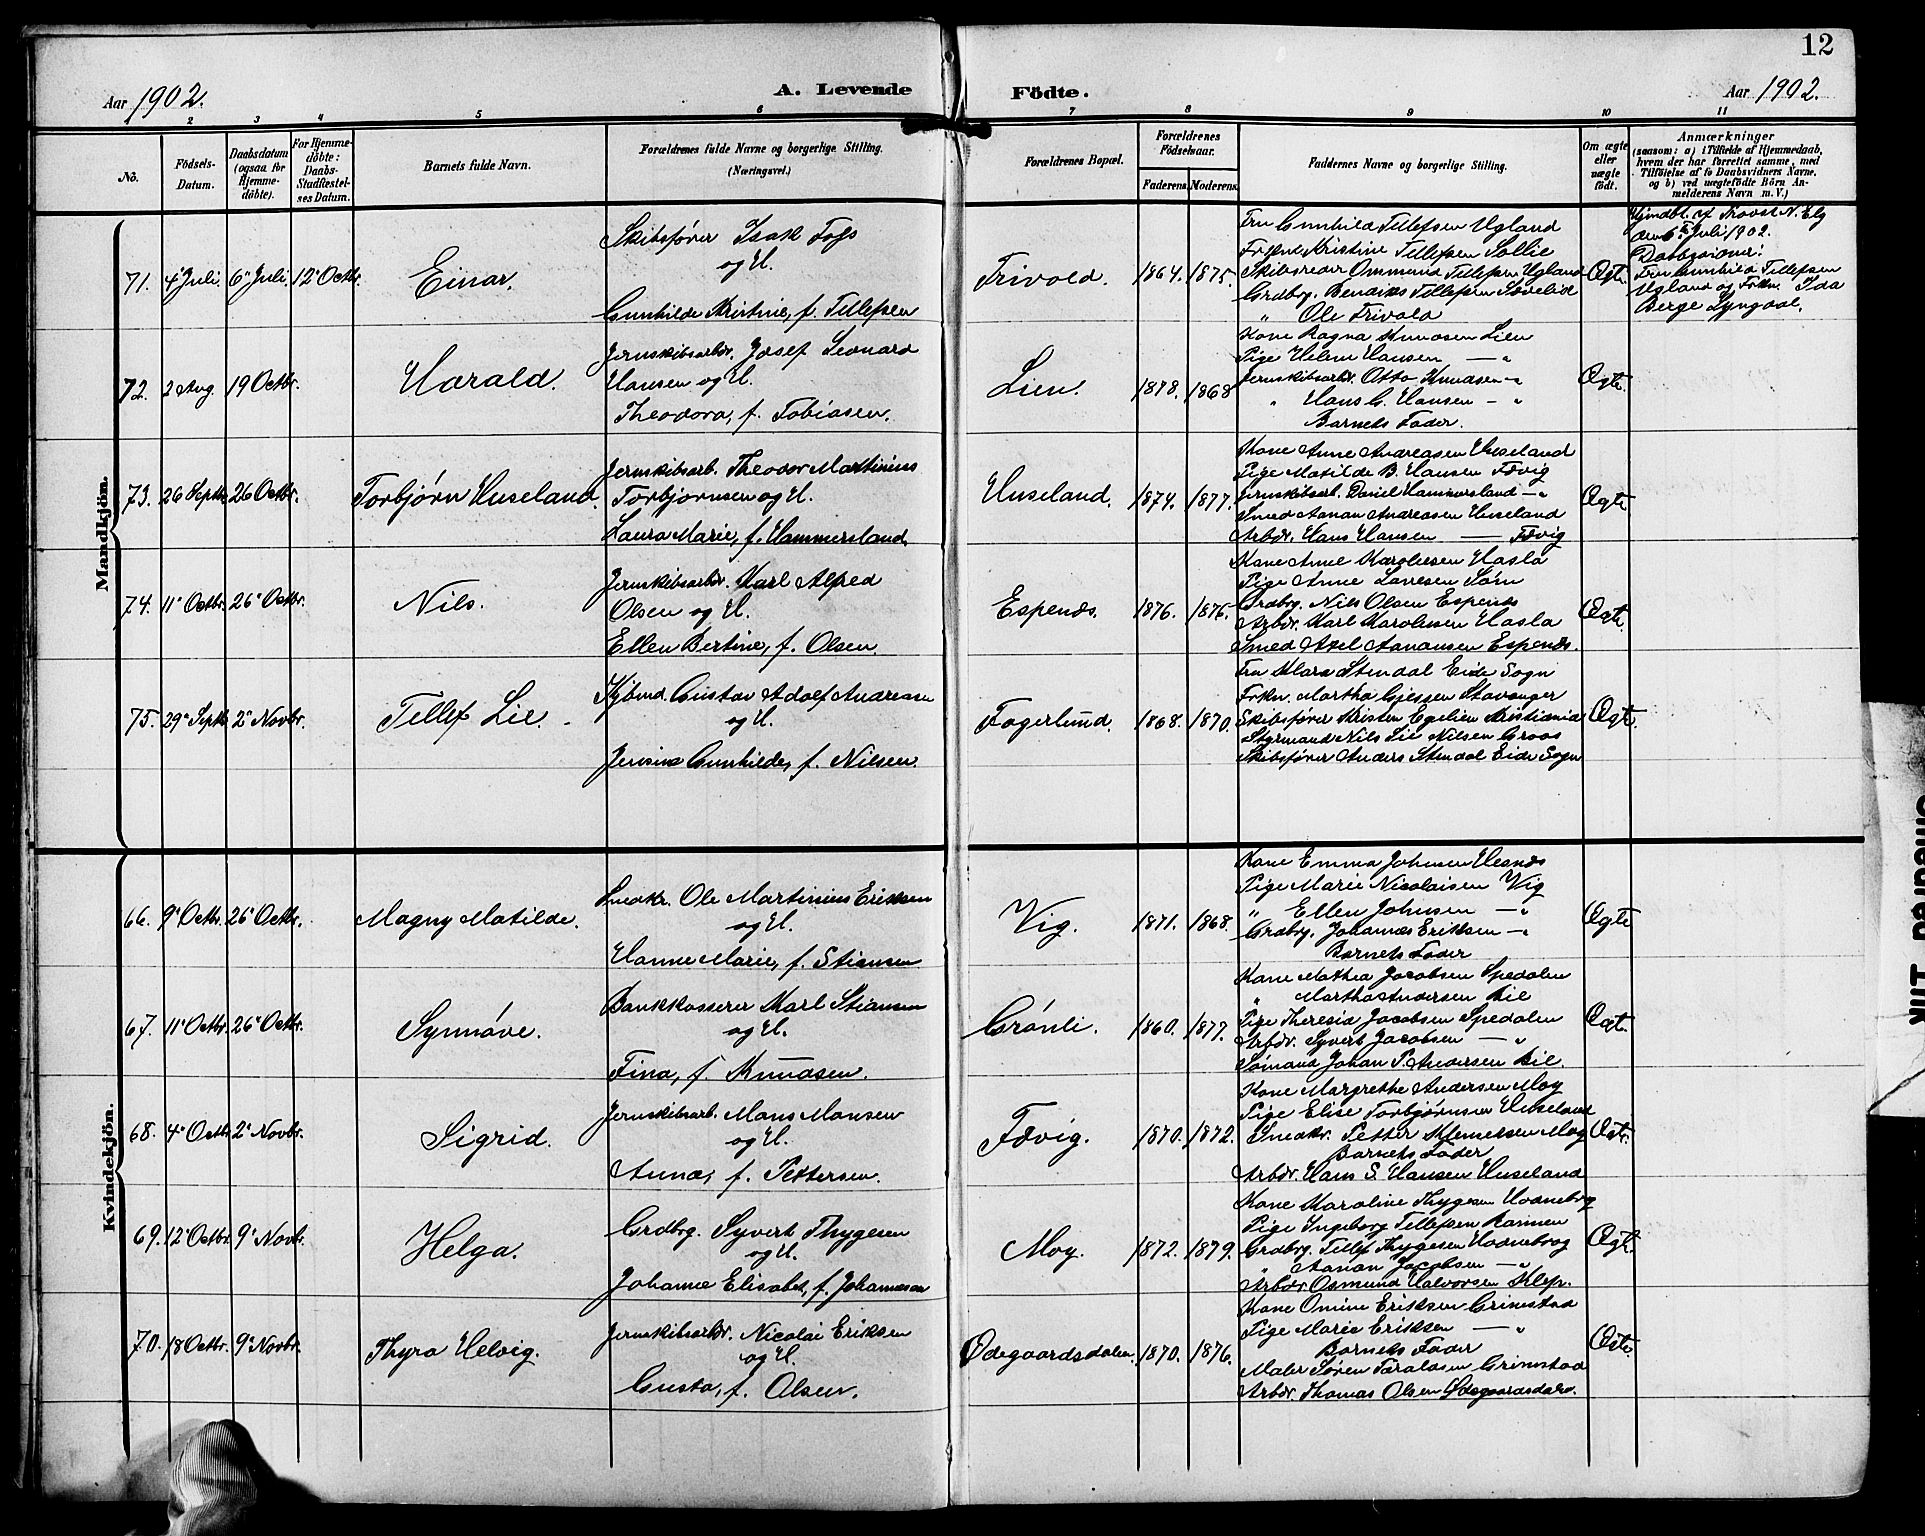 12
Aar 1902.
A. Levende Födte.
Aar 1902.
1 2 3 4 5 6 7 8 9 10 11
No.
Födsels-Datum.
Daabsdatum (ogsaa for Hjemmedöbte).
For Hjemmedöbte: Daabs-Stadfæstelses Datum.
Barnets fulde Navn.
Forældrenes fulde Navne og borgerlige Stilling. (Næringsvei.)
Forældrenes Bopæl.
Forældrenes Födselsaar.
Faderens. Moderens.
Faddernes Navne og borgerlige Stilling.
Om ægte eller uægte født.
Anmærkninger
(saasom: a) i Tilfælde af Hjemmedaab,
hvem der har forrettet samme, med
Tilföielse af to Daabsvidners Navne,
og b) ved uægtefödte Börn An-
melderens Navn m. V.)
Mandkjön.
71. 4 Juli. 6 Juli. 12 Octbr. Einar.
Skibsfører Isak Fogs
og H.
Gunhilde Kristine, f. Tellefsen
Trivold. 1864. 1875.
Fru Gunhild Tellefsen Ugland
Frkn Kristine Tellefsen Sollie
Skibsreder Ommund Tellefsen Ugland
Grdbrg. Bendiks Tellefsen Sævelid
" Ole Trivold
Ægte.
Hjmdbt. af Provst N. Elg
den 6te Juli 1902.
Daabsvidner:
Fru Gunhild Tellefsen
Ugland og Frkn. Ida
Berge Lyngdal.
72. 2 Aug. 19 Octbr. Harald.
Jernskibsarbdr. Josef Leonard
Hansen og H.
Theodora, f. Tobiasen.
Lien. 1878. 1868
Kone Ragna Knudsen Lien
Pige Helene Hansen — "
Jernskibsarbdr. Otto Knudsen — "
" Hans G. Hansen — "
Barnets Fader.
Ægte.
73. 26 Septbr. 26 Octbr. Torbjørn Huseland.
Jernskibsarb. Theodor Martinius
Torbjørnsen og H.
Laura Marie, f. Hammersland.
Huseland. 1874. 1877.
Kone Anne Andreasen Huseland
Pige Matilde B. Hansen Fævig
Jernskibsarb. Daniel Hammersland — "
Smed Aanan Andreasen Huseland
Arbdr. Hans Hansen — Fævig
Ægte
74. 11 Octbr. 26 Octbr. Nils.
Jernskibsarbdr. Karl Alfred
Olsen og H.
Ellen Bertine, f. Olsen.
Espenæs. 1876. 1875.
Kone Anne Karoliusen Hasla
Pige Anne Larsen Søm
Grdbrg. Nils Olsen Espenæs
Arbdr. Karl Karoliusen Hasla
Smed Axel Aanansen Espenæs.
Ægte.
75. 29 Septbr. 2 Novbr. Tellef Lie.
Kjøbmd. Gustav Adolf Andreasen
og H.
Jensine Gunhilde, f. Nilsen.
Fagerlund. 1868. 1870.
Fru Klara Stendal Eide Sogn
Frkn. Martha Gjessen Stavanger
Skibsfører Kristen Egelien Kristiania
Styrmand Nils Lie Nilsen Groos
Skibsfører Anders Stendal Eide Sogn
Ægte.
Kvindekjön.
66. 9 Octbr. 26 Octbr. Magny Matilde.
Snedkr. Ole Martinius Eriksen
og H.
Hanne Marie, f. Stiansen
Vig. 1871. 1868.
Kone Emma Johnsen Hesnæs
Pige Marie Nicolaisen Vig
" Ellen Johnsen — "
Grdbrg. Johannes Eriksen — "
Barnets Fader
Ægte
67. 11 Octbr. 26 Octbr. Synnøve.
Bankkasserer Karl Stiansen
og H.
Fina, f. Knudsen.
Grønli. 1860. 1877.
Kone Mathea Jacobsen Spedalen
" Martha Andersen Bie
Pige Theresia Jacobsen Spedalen
Arbdr. Syvert Jacobsen — "
Sømand Johan P. Andersen Bie.
Ægte.
68. 4 Octbr. 2 Novbr. Sigrid.
Jernskibsarb. Mons Monsen
og H.
Anna, f. Pettersen.
Fævig. 1870. 1872.
Kone Margrethe Andersen Moy
Pige Elise Torbjørnsen Huseland
Snedkr. Petter Klemetsen Moy
Barnets Fader
Arbdr. Hans S. Hansen Huseland
Ægte.
69. 12 Octbr. 9 Novbr. Helga.
Grdbrg. Syvert Thygesen
og H.
Johanne Elisabet, f. Johannesen
Moy. 1872. 1879.
Kone Karoline Thygesen Hodnebrog
Pige Ingeborg Tellefsen Rannen
Grdbrg. Tellef Thygesen Hodnebrog
" Aanan Jacobsen — "
Arbdr. Osmund Halvorsen Klep.
Ægte.
70. 18 Octbr. 9 Novbr. Thyra Helvig.
Jernskibsarbdr. Nicolai Eriksen
og H.
Gusta, f. Olsen.
Ødegaardsdalen. 1870. 1876.
Kone Omine Eriksen Grimstad
Pige Marie Eriksen — "
Barnets Fader
Maler Søren Taraldsen Grimstad
Arbdr. Thomas Olsen Ødegaardsdalen.
Ægte.